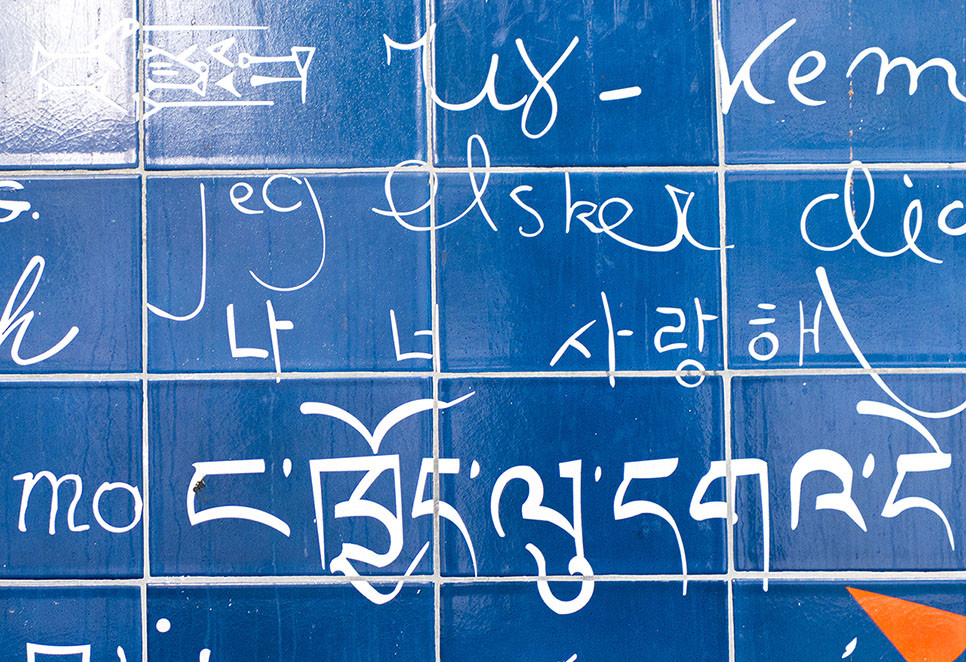 uy - kem
G. jeg elsker dig
h 나 너 사랑해
mo ང་ཁྱོད་ལུ་དགའ་ད